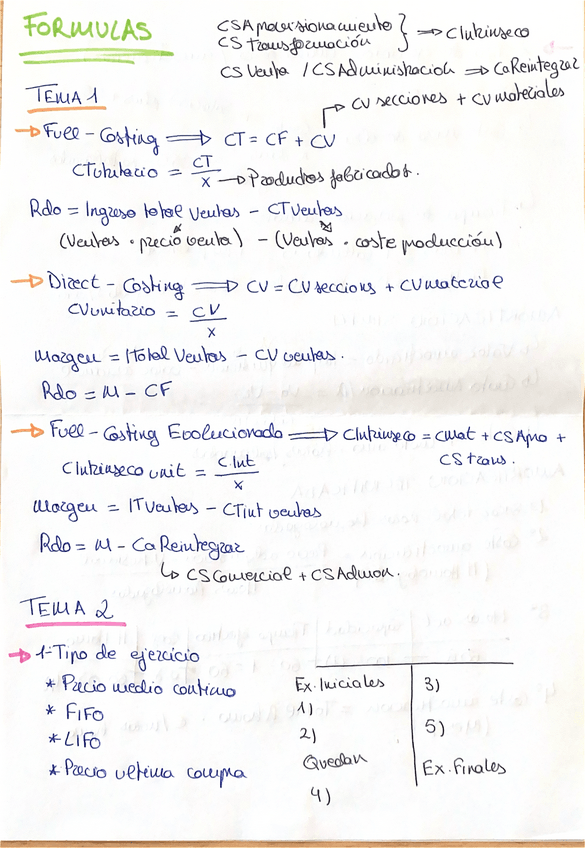 FORMULAS
CSAprovisionamiento
CS transformación } ⇒ CIntrinseco
CS Venta / CSAdministracion ⇒ CaReintegrar
TEMA 1
→ CV secciones + CV materiales
→ Full - Costing ⇒ CT = CF + CV
CTunitario = CT / x → Productos fabricados.
Rdo = Ingreso total Ventas - CTVentas
(Ventas · precio venta) - (Ventas · coste producción)
→ Direct - Costing ⇒ CV = CV seccions + CV material
CVunitario = CV / x
Margen = ITotal Ventas - CV ventas.
Rdo = M - CF
→ Full - Costing Evolucionado ⇒ CIntrinseco = CMat + CSApro +
CS trans.
CIntrinseco unit = C.Int / x
Margen = ITVentas - CTint ventas
Rdo = M - CaReintegrar
↳ CSComercial + CSAdmon.
TEMA 2
→ 1- Tipo de ejercicio
* Precio medio continuo
* FIFO
* LIFO
* Precio ultima compra
Ex. Iniciales
1)
2)
Quedan
4)
3)
5)
Ex. Finales